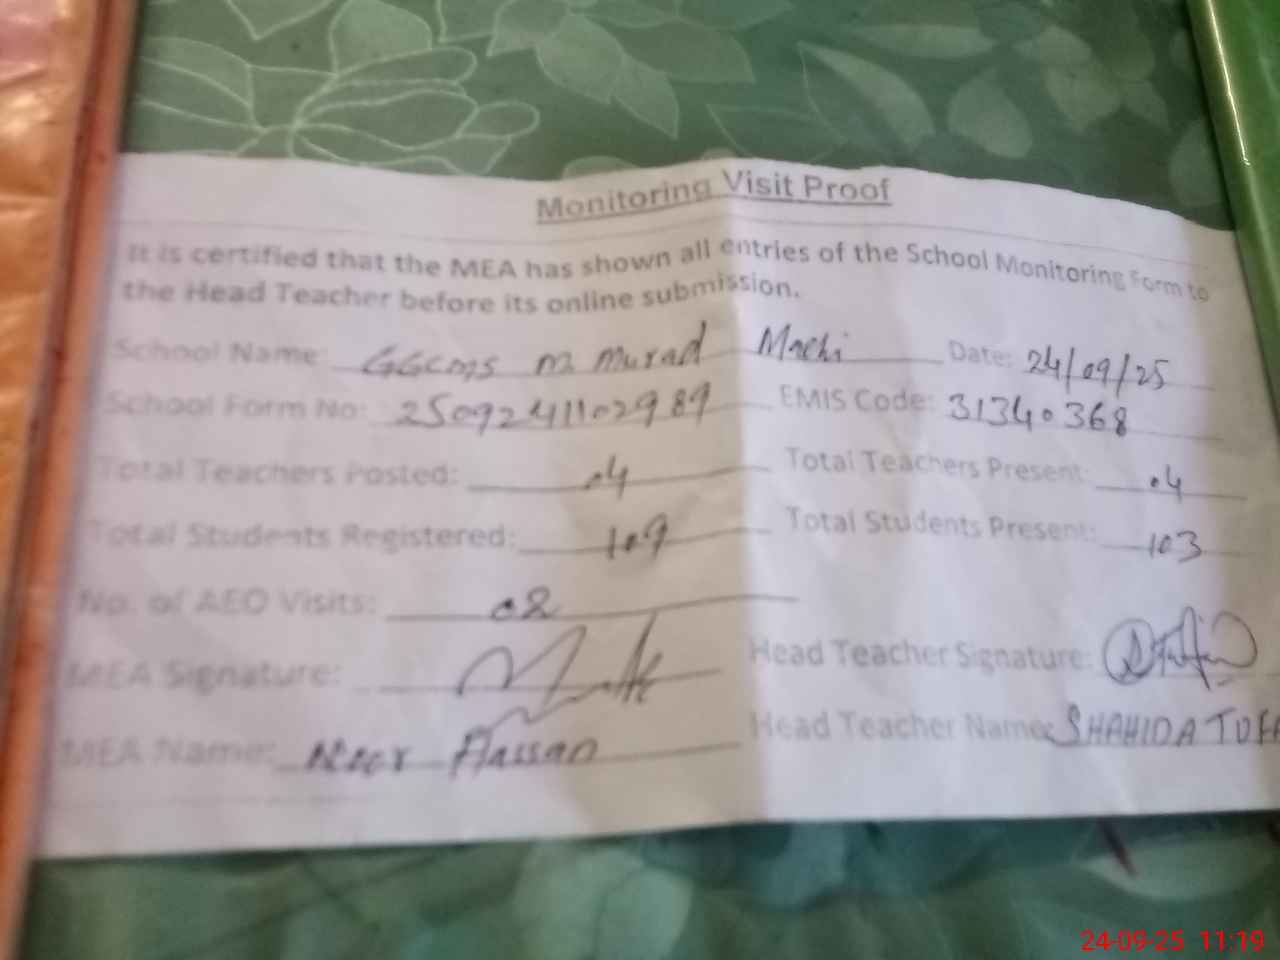 Monitoring Visit Proof
It is certified that the MEA has shown all entries of the School Monitoring Form to
the Head Teacher before its online submission.
School Name: GGCMS M. Murad Machi Date: 24/09/25
School Form No: 25092411102989 EMIS Code: 31340368
Total Teachers Posted: 04 Total Teachers Present: 04
Total Students Registered: 109 Total Students Present: 103
No. of AEO Visits: 02
MEA Signature: Head Teacher Signature:
MEA Name: Hassan Head Teacher Name: SHAHIDA
24-09-25 11:19